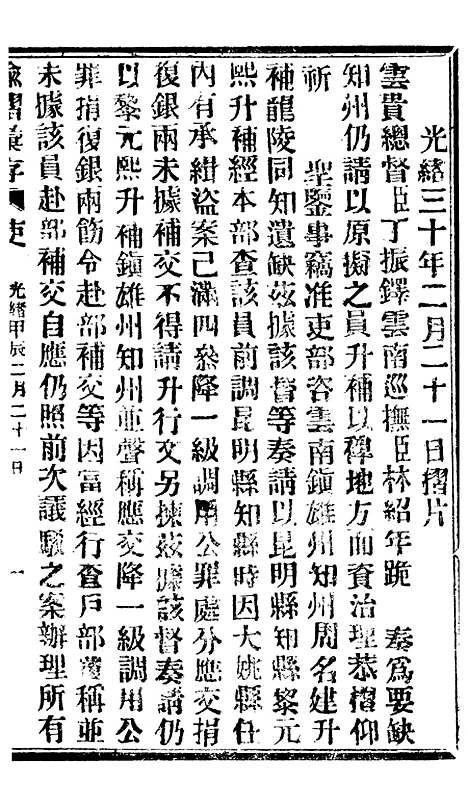 光緒三十年二月二十一日摺片
雲貴總督臣丁振鐸雲南巡撫臣林紹年跪 奏爲要缺
知州仍請以原擬之員升補以裨地方而資治理恭摺仰
祈 聖鑒事竊准吏部咨雲南鎮雄州知州周名建升
補龍陵同知遺缺茲據該督等奏請以昆明縣知縣黎元
熙升補經本部查該員前調昆明縣知縣時因大姚縣任
內有承緝盜案已滿四參降一級調用公罪處分應交捐
復銀兩未據補交不得請升行文另揀茲據該督奏請仍
以黎元熙升補鎮雄州知州並聲稱應交降一級調用公
罪捐復銀兩飭令赴部補交等因當經行查戶部覆稱並
未據該員赴部補交自應仍照前次議駁之案辦理所有
諭摺彙存 吏 光緒甲辰二月二十一日 一